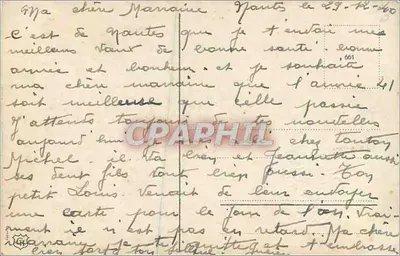 Ma chère Marraine Nantes le 29-12-40
C'est de Nantes que je t'envoie mes
meilleurs vœux de bonne santé. bonne
année et bonheur. et je souhaite
ma chère maraine que l'année 41
soit meilleuse que celle passée
J'attends toujours de tes nouvelles
aujourd'hui chez tonton
Michel. il va bien et Jeannette aussi
ses deux fils tout bien aussi. Ton
petit Louis. Venait de leur envoyer
une carte pour le Jour de l'an. Vrai-
ment il n'est pas en retard. Ma chère
marraine je te quitte et t'embrasse
bien fort
CPARHIL
001